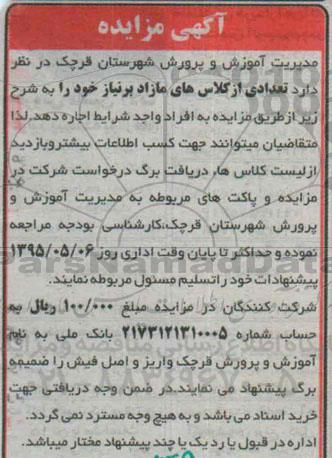 آگهی مزایده
مدیریت آموزش و پرورش شهرستان قرچک در نظر
دارد تعدادی از کلاس های مازاد برنیاز خود را به شرح
زیر از طریق مزایده به افراد واجد شرایط اجاره دهد. لذا
متقاضیان میتوانند جهت کسب اطلاعات بیشتر و بازدید
از لیست کلاس ها، دریافت برگ درخواست شرکت در
مزایده و پاکت های مربوطه به مدیریت آموزش و
پرورش شهرستان قرچک، کارشناسی بودجه مراجعه
نموده و حداکثر تا پایان وقت اداری روز ۱۳۹۵/۰۵/۰۶
پیشنهادات خود را تسلیم مسئول مربوطه نمایند.
شرکت کنندگان در مزایده مبلغ ۱۰۰/۰۰۰ ریال به
حساب شماره ۲۱۷۳۱۲۱۳۱۰۰۰۵ بانک ملی به نام
آموزش و پرورش قرچک واریز و اصل فیش را ضمیمه
برگ پیشنهاد می نمایند. در ضمن وجه دریافتی جهت
خرید اسناد می باشد و به هیچ وجه مسترد نمی گردد.
اداره در قبول یا رد یک یا چند پیشنهاد مختار میباشد.